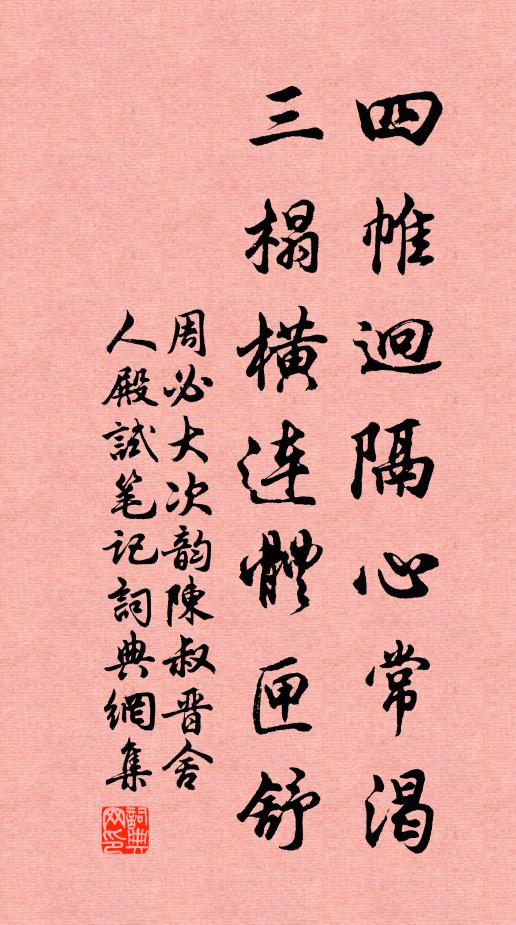 四帷迥隔心常渴
三榻橫连體匣舒
周必大次韵陳叔晋舍
人殿試笔记詞典網集
詞典
网印